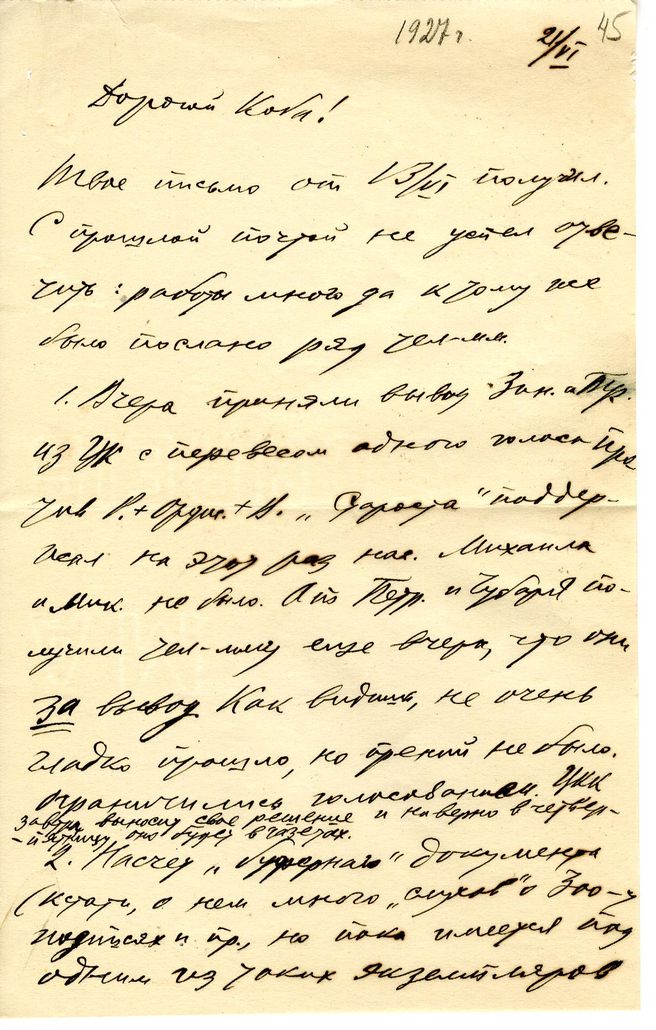 1927 г.
21/VI
45
Дорогой Коба!
Твое письмо от 13/VI получил.
С прошлой почтой не успел отве-
тить: работы много да к тому же
было послано ряд тел-мм.
1. Вчера приняли вывод Зин. и Тр.
из ЦК с перевесом одного голоса про
тив Р.+Ордж.+В. „Староста" поддер-
жал на этот раз нас. Михаила
и Мик. не было. От Петр. и Чубаря по-
лучили тел-мму еще вчера, что они
за вывод. Как видишь, не очень
гладко прошло, но прений не было.
ограничились голосованием. ЦКК
завтра выносит свое решение и наверно в четверг-
-пятницу оно будет в газетах.
2. Насчет „буферного" документа
(кстати, о нем много „слухов" о 300-х
подписях и пр., но пока имеется под
одним из таких экземпляров